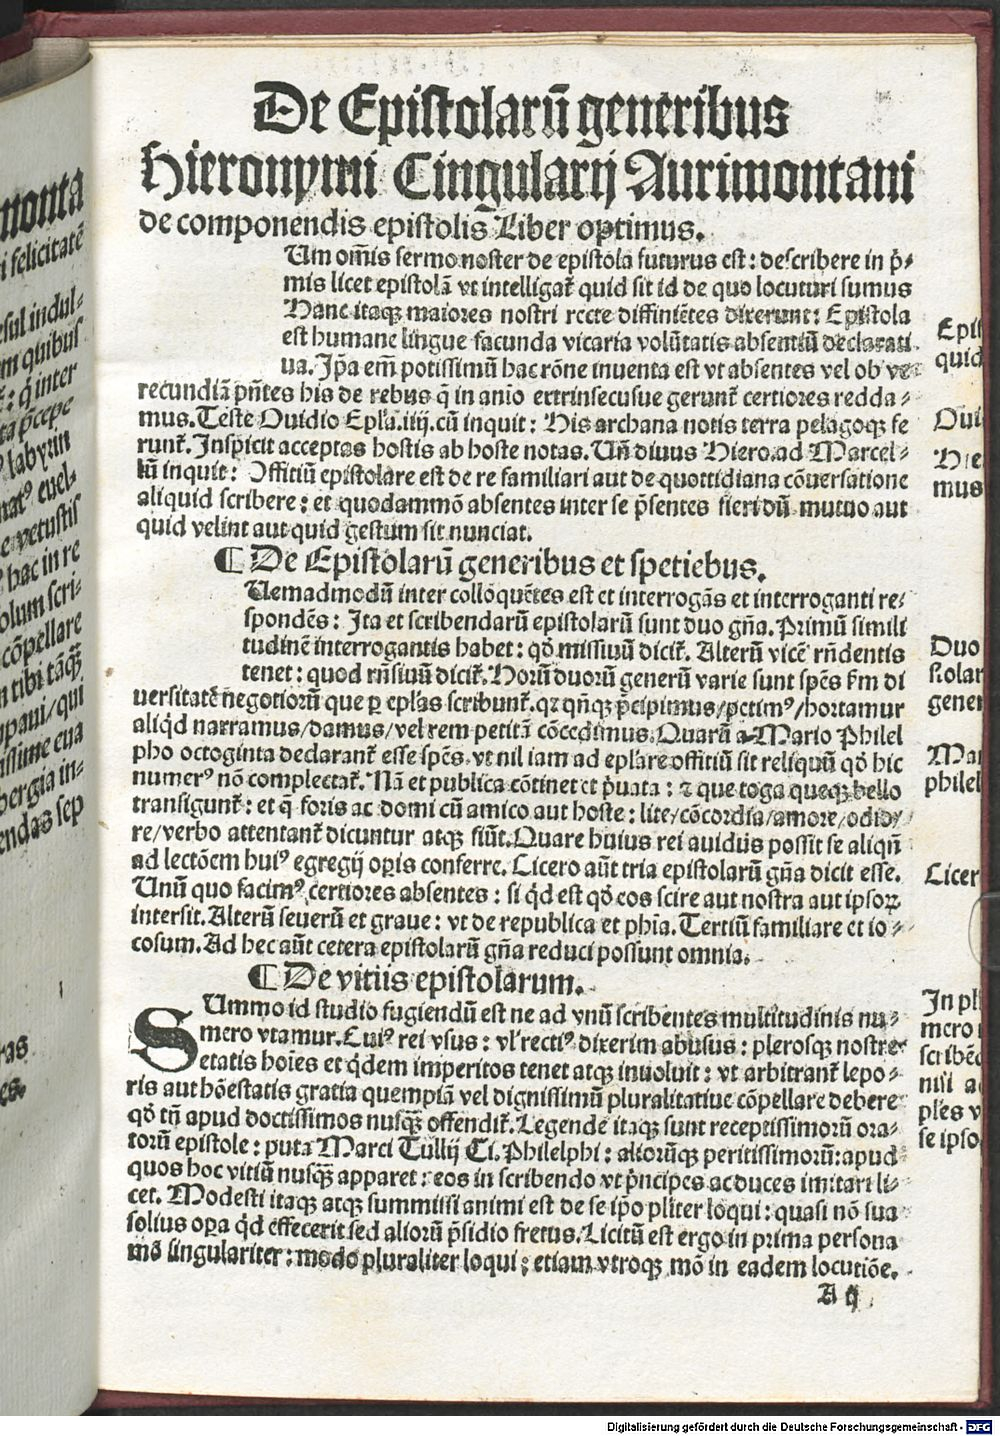 De Epistolarū generibus
Hieronymi Cingularij Aurimontani
de componendis epistolis Liber optimus.
Um om̄is sermo noster de epistola futurus est: describere in p̄-
mis licet epistolā vt intelligat̄ quid sit id de quo locuturi sumus
Hanc itaqꝫ maiores nostri recte diffiniētes dixerunt: Epistola
est humane lingue facunda vicaria volūtatis absentiū declarati
ua. Jp̄a em̄ potissimū hac rōne inuenta est vt absentes vel ob ve-
recundiā p̄ntes his de rebus q̄ in animo extrinsecusue gerunt̄ certiores redda-
mus. Teste Ouidio Epl̄a.iiij.cū inquit: His archana notis terra pelagoqꝫ fe
runt̄. Jnspicit acceptas hostis ab hoste notas. Un̄ diuus Hiero.ad Marcel-
lū inquit: Offitiū epistolare est de re familiari aut de quottidiana cōuersatione
aliquid scribere: et quodammō absentes inter se p̄sentes fieri dū mutuo aut
quid velint aut quid gestum sit nunciat.
¶ De Epistolarū generibus et spetiebus.
Uemadmodū inter colloquētes est et interrogās et interroganti re-
spondēs: Jta et scribendarū epistolarū sunt duo gn̄a. Primū simili
tudinē interrogantis habet: qd̄ missiuū dicit̄. Alterū vicē rn̄dentis
tenet: quod rn̄siuū dicit̄. Horū duorū generū varie sunt sp̄es ẜm di
uersitatē negotiorū que ꝑ epl̄as scribunt̄. qꝛ qn̄qꝫ p̄cipimus/pctimꝰ/hortamur
aliqd̄ narramus/damus/vel rem petitā cōcedimus. Quarū a Mario Philel
pho octoginta declarant̄ esse sp̄es. vt nil iam ad epl̄are offitiū sit reliquū qd̄ hic
numerꝰ nō complectat̄. Nā et publica cōtinet et p̄uata: ⁊ que toga queqꝫ bello
transigunt̄: et q̄ foris ac domi cū amico aut hoste: lite/cōcordia/amore/odio/
re/verbo attentant̄ dicuntur atqꝫ fiūt. Quare huius rei auidus possit se aliqn̄
ad lectōem huiꝰ egregij oꝑis conferre. Cicero aūt tria epistolarū gn̄a dicit esse.
Unū quo facimꝰ certiores absentes: si qd̄ est qd̄ eos scire aut nostra aut ipsoꝝ
intersit. Alterū seuerū et graue: vt de republica et ph̄ia. Tertiū familiare et io-
cosum. Ad hec aūt cetera epistolarū gn̄a reduci possunt omnia.
¶ De vitiis epistolarum.
SUmmo id studio fugiendū est ne ad vnū scribentes multitudinis nu-
mero vtamur. Cuiꝰ rei vsus: vl̄ rectiꝰ dixerim abusus: plerosqꝫ nostre
etatis hoīes et qd̄em imperitos tenet atqꝫ inuoluit: vt arbitrant̄ lepo-
ris aut hōestatis gratia quempiā vel dignissimū pluralitatiue cōpellare debere
qd̄ tn̄ apud doctissimos nusqꝫ̄ offendit̄. Legende itaqꝫ sunt receptissimorū ora-
torū epistole: puta Marci Tullij Ci. Philelphi: aliorūqꝫ peritissimorū: apud
quos hoc vitiū nusqꝫ̄ apparet: eos in scribendo vt p̄ncipes ac duces imitari li-
cet. Modesti itaqꝫ atqꝫ summissi animi est de se ip̄o pl̄iter loqui: quasi nō sua
solius oꝑa qd̄ effecerit sed aliorū p̄sidio fretus. Licitū est ergo in prima persona
mō singulariter: modo pluraliter loqui: etiam vtroqꝫ mō in eadem locutiōe.
A ij
Duo
Licer
Jn pl
Digitalisierung gefördert durch die Deutsche Forschungsgemeinschaft - DFG